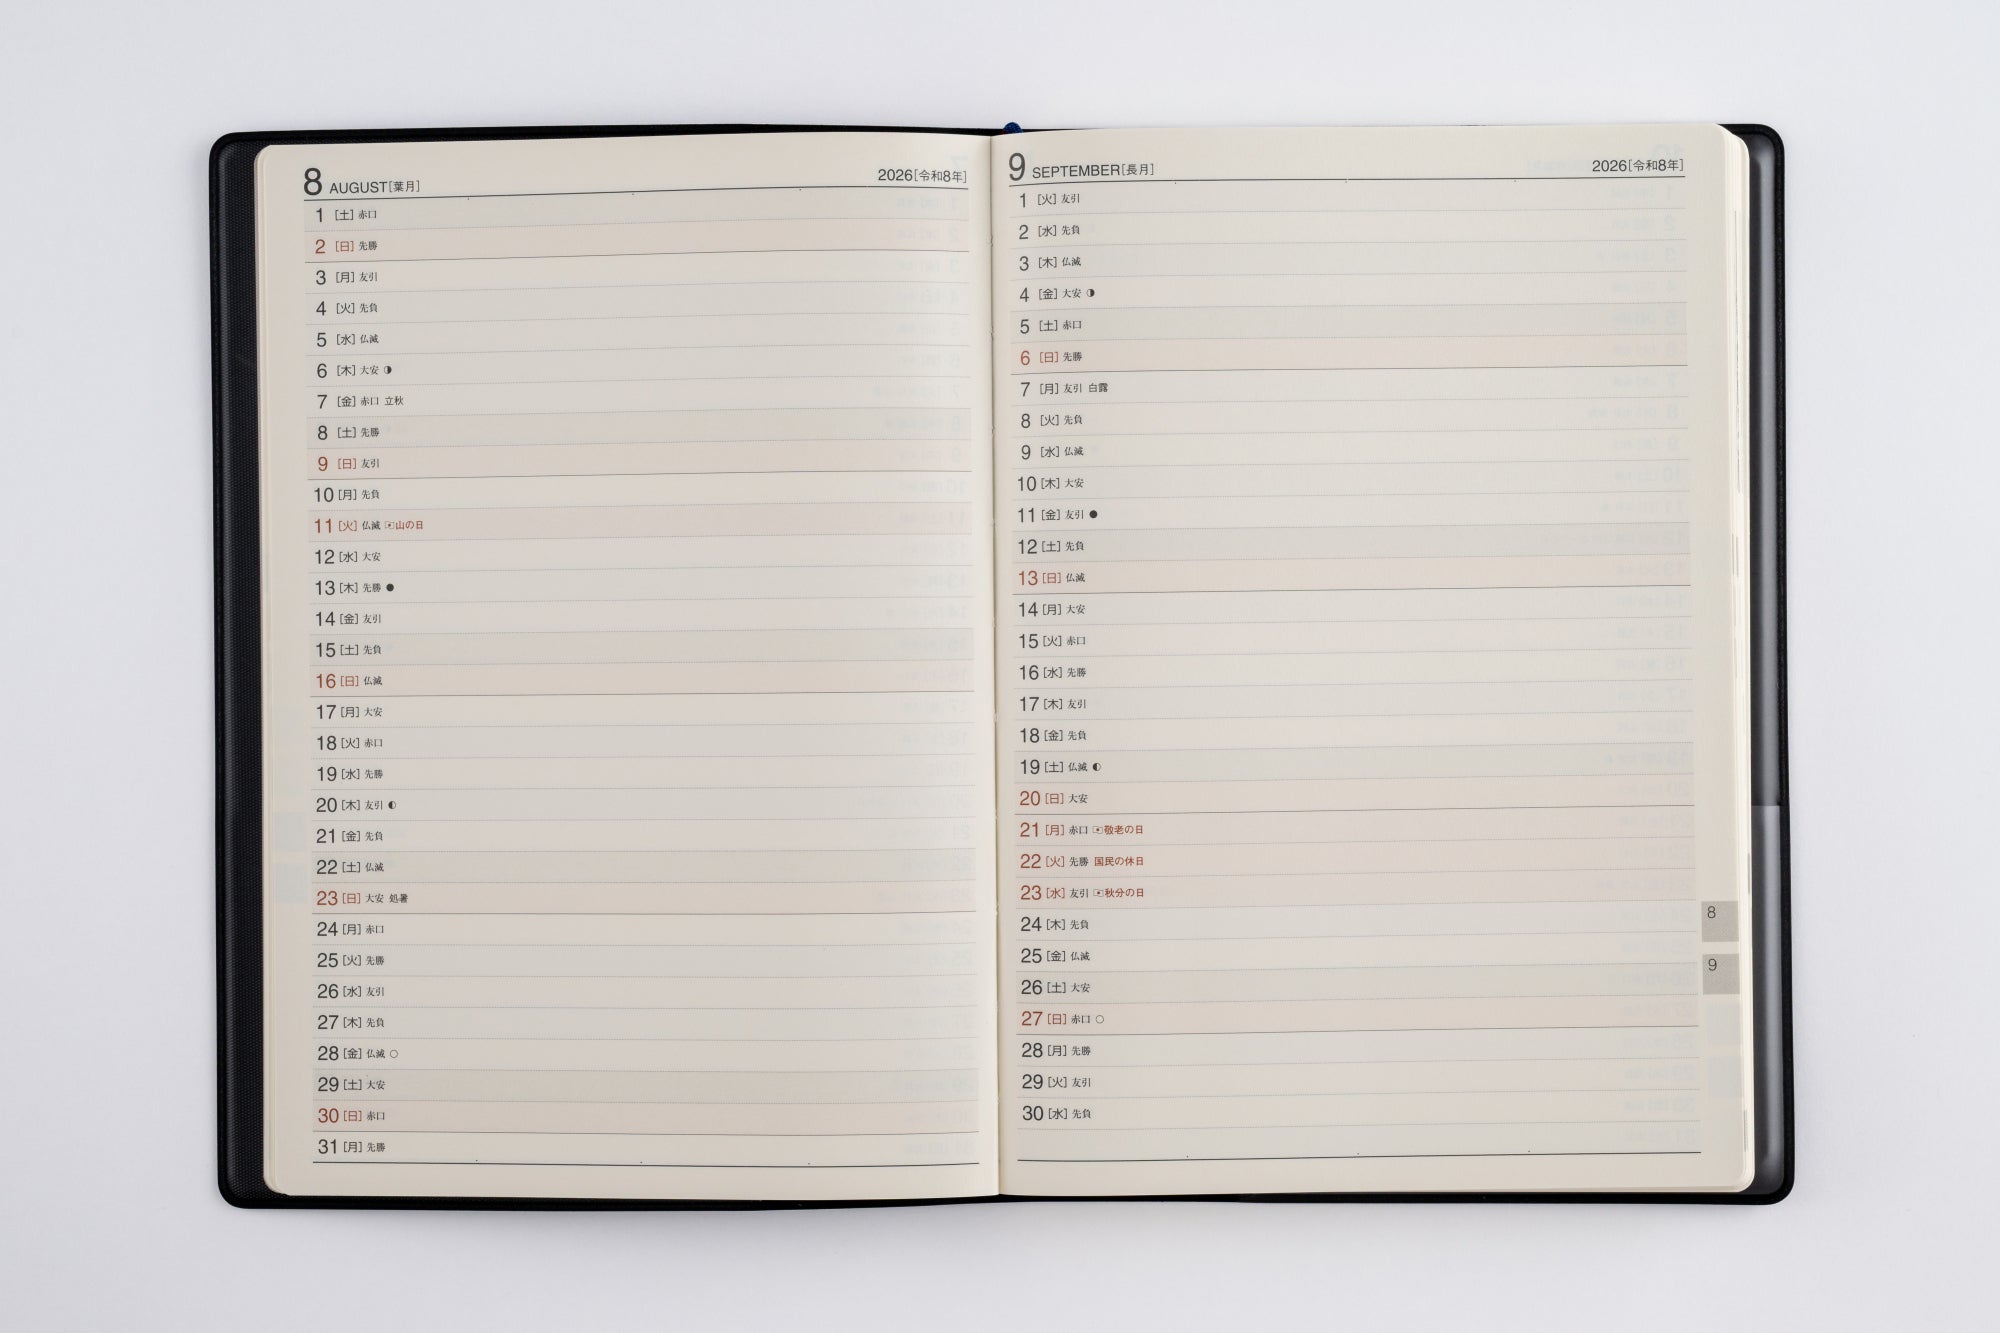 8 AUGUST[葉月] 2026[令和8年]
1 [土] 赤口
2 [日] 先勝
3 [月] 友引
4 [火] 先負
5 [水] 仏滅
6 [木] 大安 ◑
7 [金] 赤口 立秋
8 [土] 先勝
9 [日] 友引
10 [月] 先負
11 [火] 仏滅 🇯🇵山の日
12 [水] 大安
13 [木] 先勝 ●
14 [金] 友引
15 [土] 先負
16 [日] 仏滅
17 [月] 大安
18 [火] 赤口
19 [水] 先勝
20 [木] 友引 ◐
21 [金] 先負
22 [土] 仏滅
23 [日] 大安 処暑
24 [月] 赤口
25 [火] 先勝
26 [水] 友引
27 [木] 先負
28 [金] 仏滅 ○
29 [土] 大安
30 [日] 赤口
31 [月] 先勝
9 SEPTEMBER[長月] 2026[令和8年]
1 [火] 友引
2 [水] 先負
3 [木] 仏滅
4 [金] 大安 ◑
5 [土] 赤口
6 [日] 先勝
7 [月] 友引 白露
8 [火] 先負
9 [水] 仏滅
10 [木] 大安
11 [金] 友引 ●
12 [土] 先負
13 [日] 仏滅
14 [月] 大安
15 [火] 赤口
16 [水] 先勝
17 [木] 友引
18 [金] 先負
19 [土] 仏滅 ◐
20 [日] 大安
21 [月] 赤口 🇯🇵敬老の日
22 [火] 先勝 国民の休日
23 [水] 友引 🇯🇵秋分の日
24 [木] 先負
25 [金] 仏滅
26 [土] 大安
27 [日] 赤口 ○
28 [月] 先勝
29 [火] 友引
30 [水] 先負
8
9